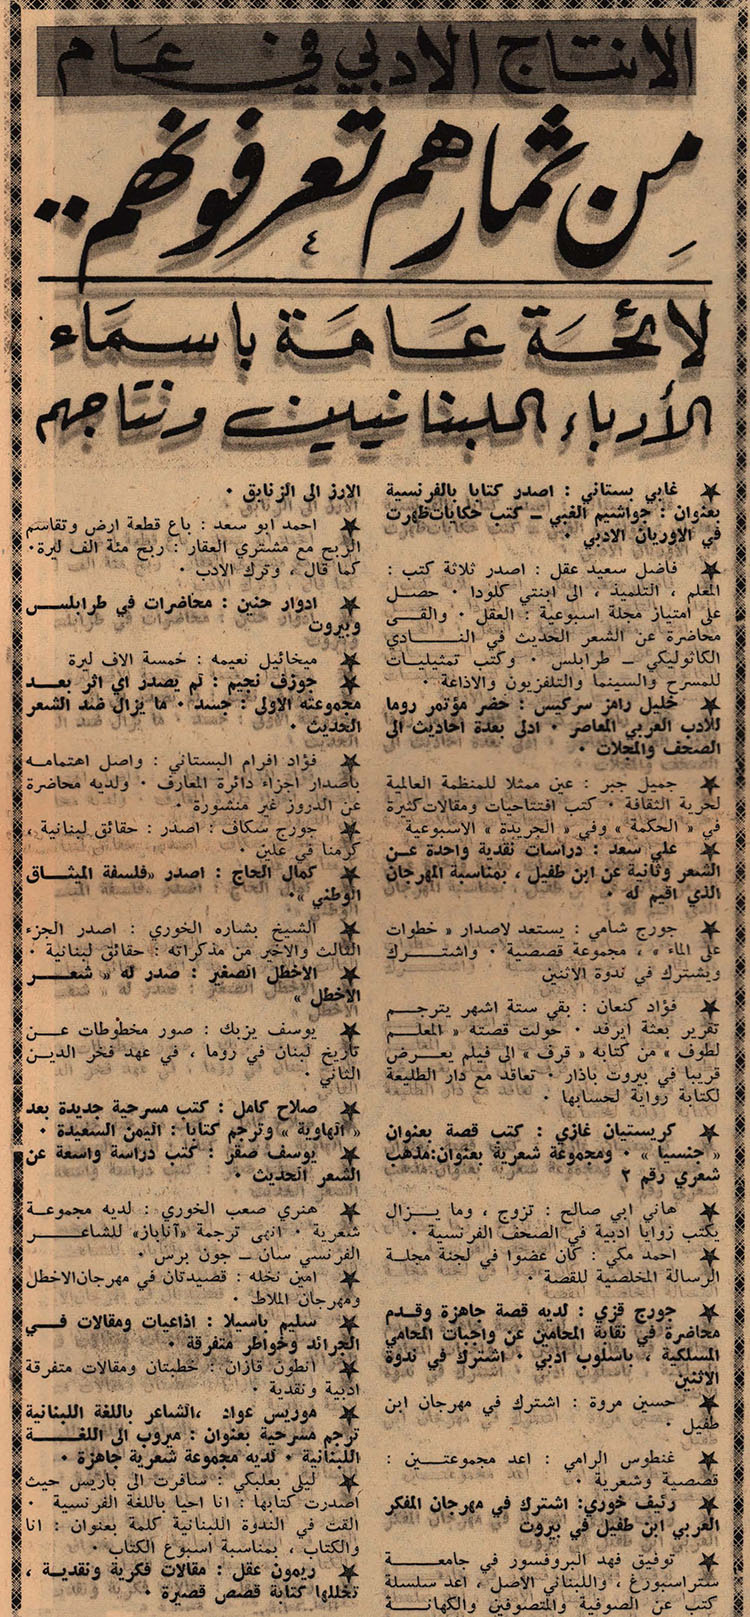 الانتاج الادبي في عام
من ثمارهم تعرفونهم..
٤
لائحة عامة باسماء
الأدباء اللبنانيين ونتاجهم
★ غابي بستاني : اصدر كتابا بالفرنسية
بعنوان : جواشيم الغبي ــ كتب حكايات ظهرت
في الاوريان الادبي ٠
★ فاضل سعيد عقل : اصدر ثلاثة كتب :
المعلم ، التلميذ ، الى ابنتي كلودا ٠ حصل
على امتياز مجلة اسبوعية : العقل ٠ والقى
محاضرة عن الشعر الحديث في النادي
الكاثوليكي ــ طرابلس ٠ وكتب تمثيليات
للمسرح والسينما والتلفزيون والاذاعة ٠
★ خليل رامز سركيس : حضر مؤتمر روما
للادب العربي المعاصر ٠ ادلى بعدة احاديث الى
الصحف والمجلات ٠
★ جميل جبر : عين ممثلا للمنظمة العالمية
لحرية الثقافة ٠ كتب افتتاحيات ومقالات كثيرة
في « الحكمة » وفي « الجريدة » الاسبوعية
★ علي سعد : دراسات نقدية واحدة عن
الشعر وثانية عن ابن طفيل ، بمناسبة المهرجان
الذي اقيم له ٠
★ جورج شامي : يستعد لاصدار « خطوات
على الماء » ، مجموعة قصصية ٠ واشترك
ويشترك في ندوة الاثنين
★ فؤاد كنعان : بقي ستة اشهر يترجم
تقرير بعثة ايرفد ٠ حولت قصته « المعلم
لطوف » من كتابه « قرف » الى فيلم يعرض
قريبا في بيروت باذار ٠ تعاقد مع دار الطليعة
لكتابة رواية لحسابها ٠
★ كريستيان غازي : كتب قصة بعنوان
« جنسيا » ٠ ومجموعة شعرية بعنوان: مذهب
شعري رقم ٢
★ هاني ابي صالح : تزوج ، وما يزال
يكتب زوايا ادبية في الصحف الفرنسية ٠
★ احمد مكي : كان عضوا في لجنة مجلة
الرسالة المخلصية للقصة ٠
★ جورج قزي : لديه قصة جاهزة وقدم
محاضرة في نقابة المحامين عن واجبات المحامي
المسلكية ، باسلوب ادبي ٠ اشترك في ندوة
الاثنين
★ حسين مروة : اشترك في مهرجان ابن
طفيل ٠
★ غنطوس الرامي : اعد مجموعتين :
قصصية وشعرية ٠
★ رئيف خوري: اشترك في مهرجان المفكر
العربي ابن طفيل في بيروت
★ توفيق فهد البروفسور في جامعة
ستراسبورغ ، واللبناني الاصل ، اعد سلسلة
كتب عن الصوفية والمتصوفين والكهانة
الارز الى الزنابق ٠
★ احمد ابو سعد : باع قطعة ارض وتقاسم
الربح مع مشتري العقار : ربح مئة الف ليرة٠
كما قال ، وترك الادب ٠
★ ادوار حنين : محاضرات في طرابلس
وبيروت
★ ميخائيل نعيمه : خمسة الاف ليرة
★ جوزف نجيم : لم يصدر اي اثر بعد
مجموعته الاولى : جسد ٠ ما يزال ضد الشعر
الحديث ٠
★ فؤاد افرام البستاني : واصل اهتمامه
باصدار اجزاء دائرة المعارف ٠ ولديه محاضرة
عن الدروز غير منشورة ٠
★ جورج سكاف : اصدر : حقائق لبنانية ،
كرمنا في علين ٠
★ كمال الحاج : اصدر «فلسفة الميثاق
الوطني »٠
★ الشيخ بشاره الخوري : اصدر الجزء
الثالث والاخير من مذكراته : حقائق لبنانية ٠
★ الاخطل الصغير : صدر له « شعر
الاخطل »
★ يوسف يزبك : صور مخطوطات عن
تاريخ لبنان في روما ، في عهد فخر الدين
الثاني ٠
★ صلاح كامل : كتب مسرحية جديدة بعد
« الهاوية » وترجم كتابا : اليمن السعيدة ٠
★ يوسف صقر : كتب دراسة واسعة عن
الشعر الحديث ٠
★ هنري صعب الخوري : لديه مجموعة
شعرية ٠ انهى ترجمة «آناباز» للشاعر
الفرنسي سان ــ جون برس ٠
★ امين نخله : قصيدتان في مهرجان الاخطل
ومهرجان الملاط ٠
★ سليم باسيلا : اذاعيات ومقالات في
الجرائد وخواطر متفرقة ٠
★ انطون قازان : خطبتان ومقالات متفرقة
ادبية ونقدية ٠
★ موريس عواد ،الشاعر باللغة اللبنانية
ترجم مسرحية بعنوان : ميروب الى اللغة
اللبنانية ٠ لديه مجموعة شعرية جاهزة ٠
★ ليلى بعلبكي : سافرت الى باريس حيث
اصدرت كتابها : انا احيا باللغة الفرنسية ٠
القت في الندوة اللبنانية كلمة بعنوان : انا
والكتاب ، بمناسبة اسبوع الكتاب ٠
★ ريمون عقل : مقالات فكرية ونقدية ،
تخللها كتابة قصص قصيرة ٠